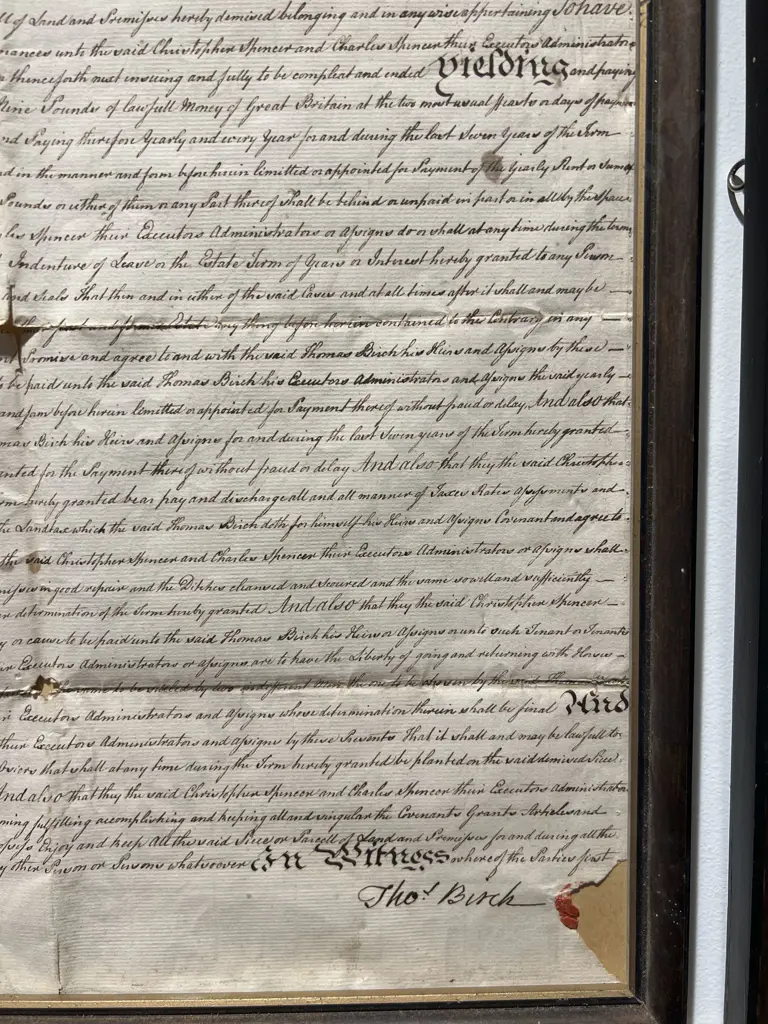 ll of Land and Premisses hereby demised belonging and in any wise appertaining To have
nances unto the said Christopher Spencer and Charles Spencer their Executors Administrators
thenceforth next ensuing and fully to be compleat and ended Yielding and paying
Nine Pounds of lawfull Money of Great Britain at the two most usual Feasts or days of payment
nd Paying therefore Yearly and every Year for and during the last Seven Years of the Term
d in the manner and form before herein limitted or appointed for Payment of the Yearly Rent or Sum of
Pounds or either of them or any Part thereof shall be behind or unpaid in part or in all by the space
les Spencer their Executors Administrators or Assigns do or shall at any time during the term
Indenture of Lease or the Estate Term of Years or Interest hereby granted to any Person
and Seals That then and in either of the said Cases and at all times after it shall and may be
Estate any thing before herein contained to the Contrary in any
nt Promise and agree to and with the said Thomas Birch his Heirs and Assigns by these
o be paid unto the said Thomas Birch his Executors Administrators and Assigns the said yearly
and form before herein limitted or appointed for Payment thereof without fraud or delay And also that
mas Birch his Heirs and Assigns for and during the last Seven years of the Term hereby granted
ented for the Payment thereof without fraud or delay And also that they the said Christopher
rm hereby granted bear pay and discharge all and all manner of Taxes Rates Assessments and
he Landtax which the said Thomas Birch doth for himself his Heirs and Assigns Covenant and agree to
the said Christopher Spencer and Charles Spencer their Executors Administrators or Assigns shall
misses in good repair and the Ditches cleansed and Scoured and the same so well and sufficiently
er determination of the Term hereby granted And also that they the said Christopher Spencer
y or cause to be paid unto the said Thomas Birch his Heirs or Assigns or unto such Tenant or Tenants
eir Executors Administrators or Assigns are to have the Liberty of going and returning with Horses
same to be settled by two indifferent men the one to be chosen by the said Thomas
r Executors Administrators and Assigns whose determination therein shall be final And
their Executors Administrators and Assigns by these Presents That it shall and may be lawfull to
Osiers that shall at any time during the Term hereby granted be planted on the said demised Piece
And also that they the said Christopher Spencer and Charles Spencer their Executors Administrators
ming fulfilling accomplishing and keeping all and singular the Covenants Grants Articles and
ossess Enjoy and keep All the said Piece or Parcell of Land and Premisses for and during all the
y other Person or Persons whatsoever In Witness whereof the Parties first
Thos. Birch